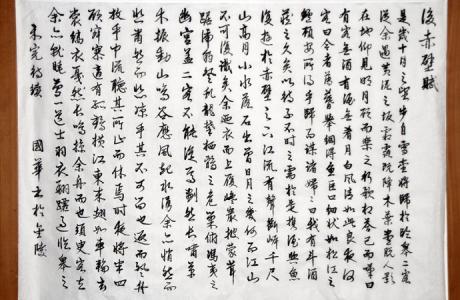 後赤壁賦
是歲十月之望步自雪堂將歸於臨皋二客
從余過黃泥之坂霜露既降木葉盡脫人影
在地仰見明月顧而樂之行歌相答已而嘆曰
有客無酒有酒無肴月白風清如此良夜何
客曰今者薄暮舉網得魚巨口細鱗狀如松江之
鱸顧安所得酒乎歸而謀諸婦婦曰我有斗酒
藏之久矣以待子不時之需於是攜酒與魚
復遊於赤壁之下江流有聲斷岸千尺
山高月小水落石出曾日月之幾何而江山
不可復識矣余乃攝衣而上履巉岩披蒙茸
踞虎豹登虬龍攀棲鶻之危巢俯馮夷之
幽宮蓋二客不能從焉劃然長嘯草
木振動山鳴谷應風起水湧余亦悄然而
悲肅然而恐凜乎其不可留也返而登舟
放乎中流聽其所止而休焉時夜將半四
顧寂寥適有孤鶴橫江東來翅如車輪玄
裳縞衣戛然長鳴掠余舟而西也須臾客去
余亦就睡夢一道士羽衣翩躚過臨皋之
未完待續 國華書於金陵